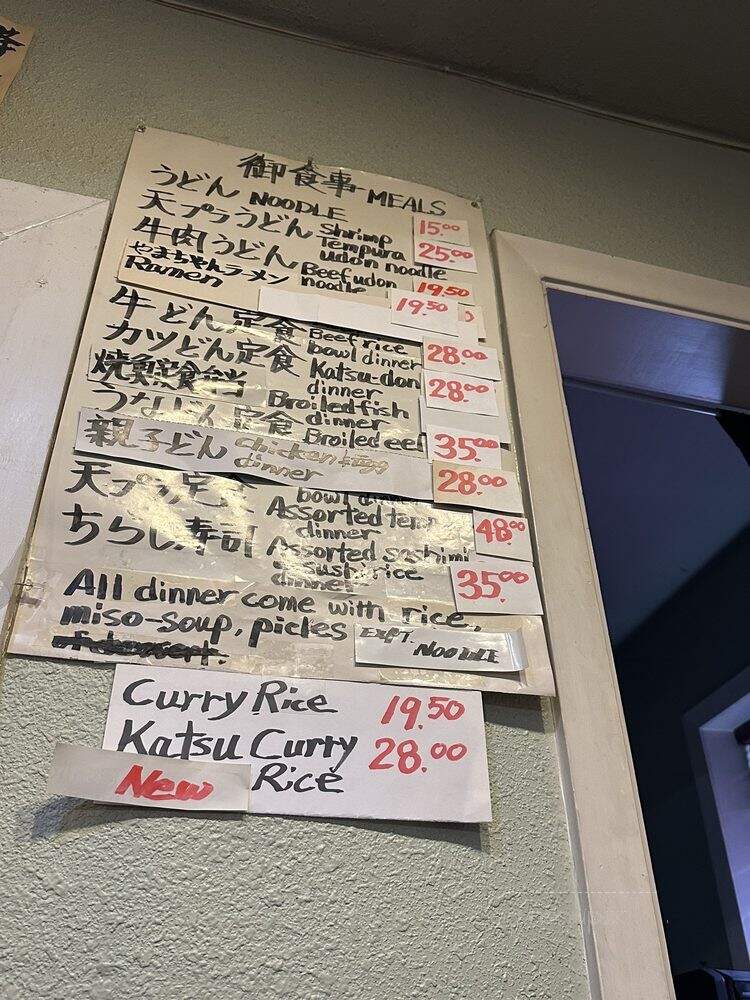 御食事 MEALS
うどん NOODLE 15.00
天プラうどん Shrimp Tempura udon noodle 25.00
牛肉うどん Beef udon noodle 19.50
やまちゃんラーメン Ramen 19.50
牛どん定食 Beef rice bowl dinner 28.00
カツどん定食 Katsu-don dinner 28.00
焼魚定食弁当 Broiled fish dinner
うなどん定食 Broiled eel 35.00
親子どん chicken egg dinner 28.00
bowl dinner
天プラ定食 Assorted tem dinner 48.00
ちらし寿司 Assorted sashimi Sushi rice dinner 35.00
All dinner come with rice,
miso-soup, pickles Expt. NOODLE
Curry Rice 19.50
Katsu Curry 28.00
New Rice